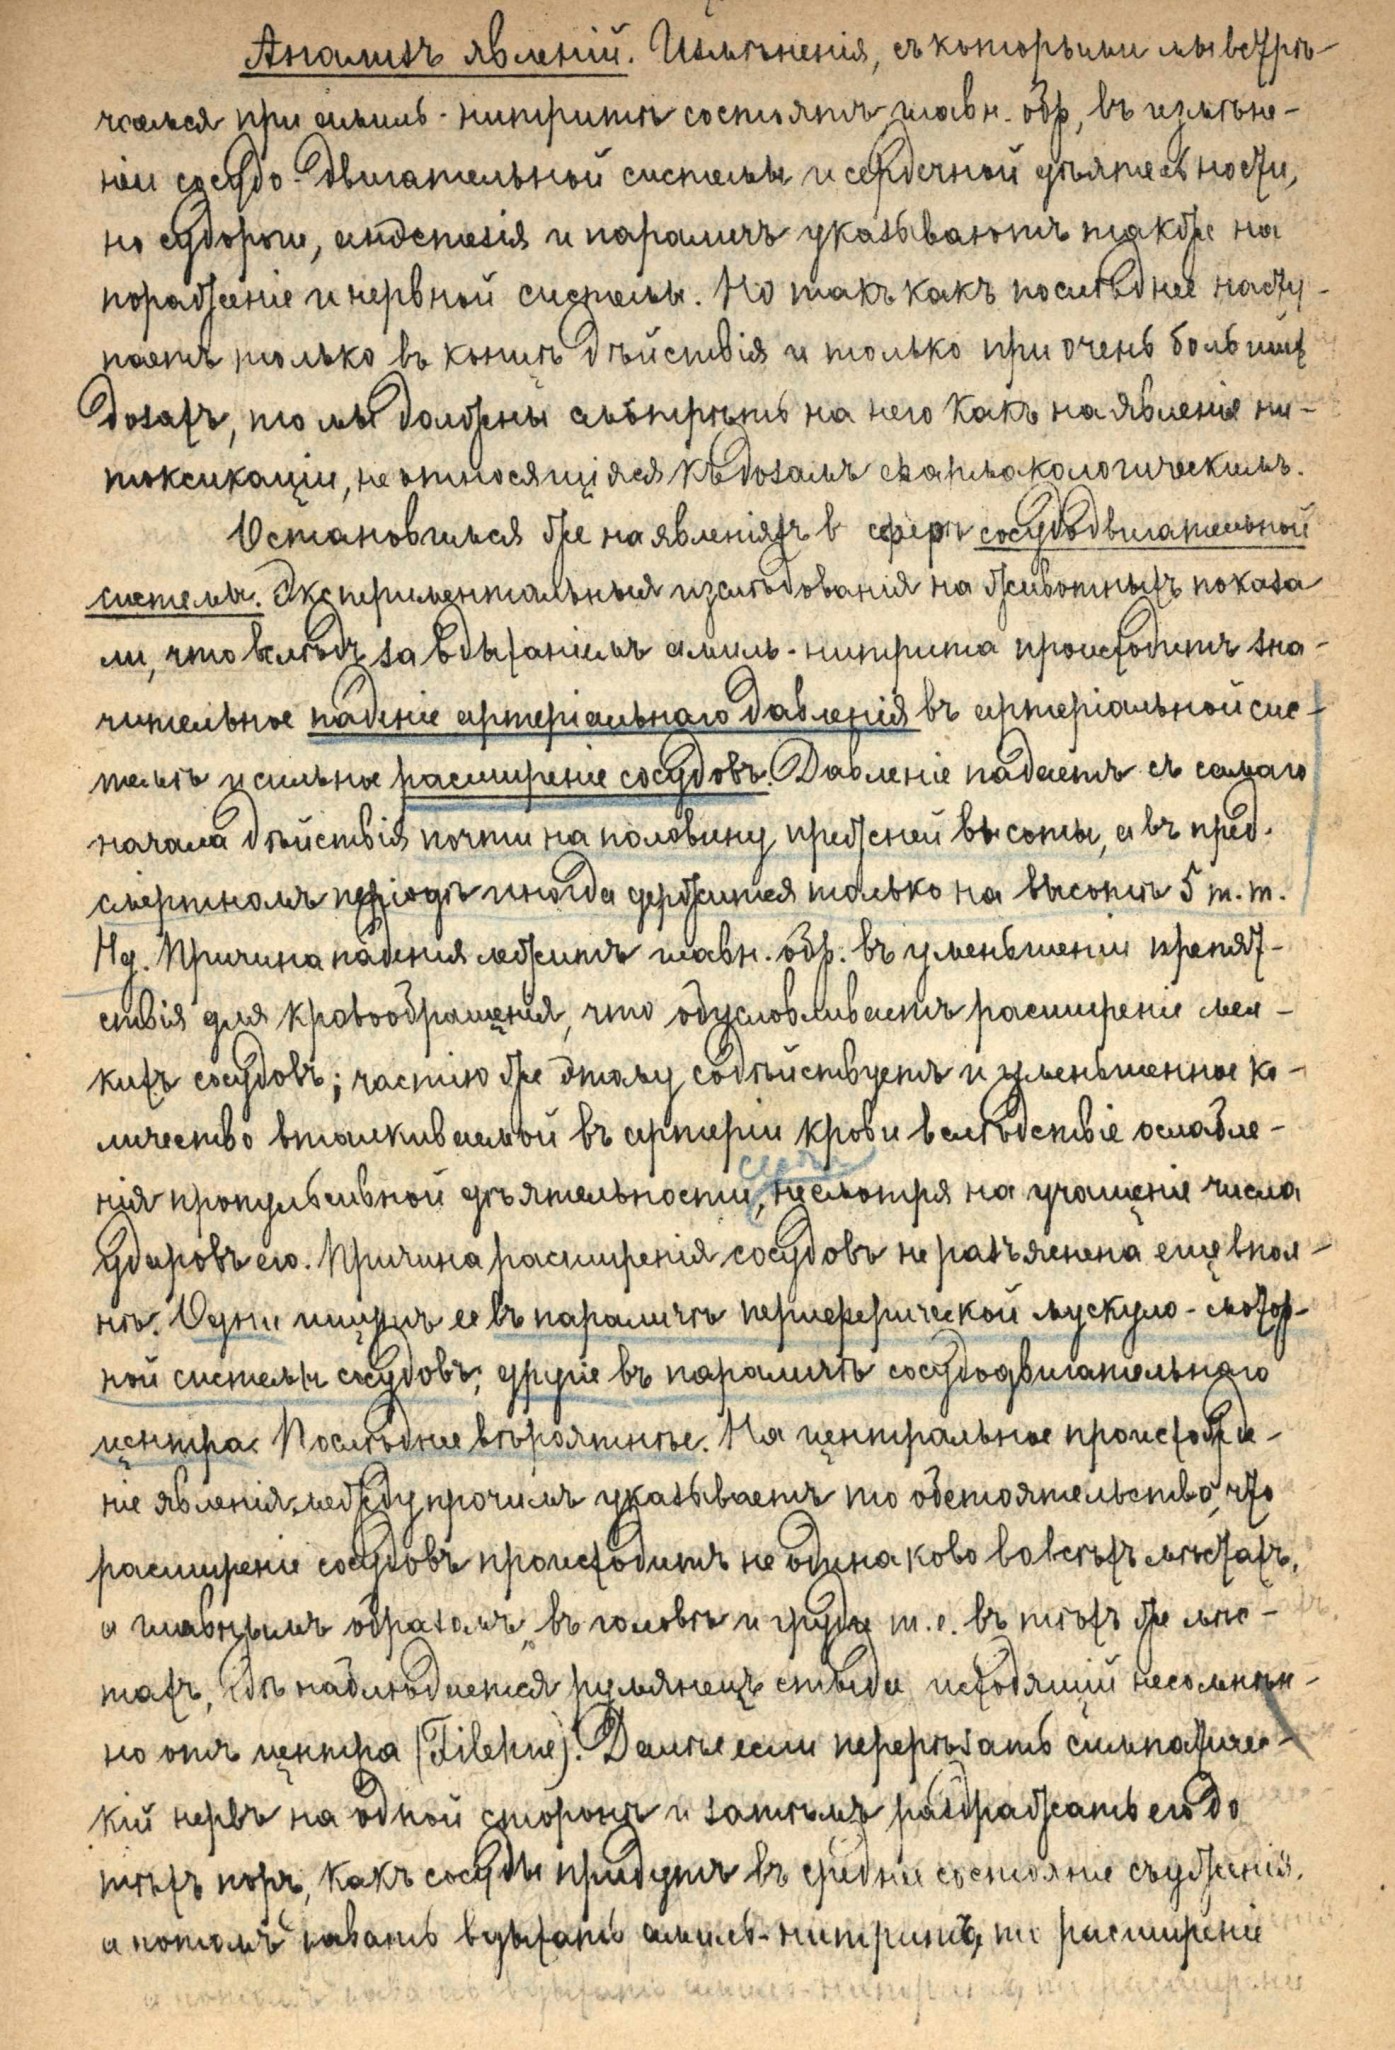 Анализъ явленій. Измѣненія, съ которыми мы встрѣ-
чаемся при амиль-нитритѣ состоятъ главн. обр., въ измѣне-
ніи сосудо-двигательной системы и сердечной дѣятельности,
но судороги, анэстезія и параличъ указываютъ также на
пораженіе и нервной системы. Но такъ какъ послѣднее насту-
паетъ только въ концѣ дѣйствія и только при очень большихъ
дозахъ, то мы должны смотрѣть на него какъ на явленіе ин-
токсикаціи, не относящіяся къ дозамъ фармакологическимъ.
Остановимся же на явленіяхъ в сферѣ сосудодвигательной
системы. Экспериментальныя изслѣдованія на животныхъ показа
ли, что вслѣдъ за вдыханіемъ амиль-нитрита происходитъ зна-
чительное паденіе артеріальнаго давленія въ артеріальной сис-
темѣ и сильное расширеніе сосудовъ. Давленіе падаетъ съ самаго
начала дѣйствія почти на половину прежней высоты, а въ пред-
смертномъ періодѣ иногда держится только на высотѣ 5 m.m.
Hg. Причина паденія лежитъ главн. обр. въ уменьшеніи препят-
ствія для кровообращенія, что обусловливаетъ расширеніе мел-
кихъ сосудовъ; частію же этому содѣйствуетъ и уменьшенное ко-
личество вталкиваемой въ артеріи крови вслѣдствіе ослабле-
нія пропульсивной дѣятельности сердца, несмотря на учащеніе числа
ударовъ его. Причина расширенія сосудовъ не разъяснена еще впол-
нѣ. Одни ищутъ ее въ параличѣ периферической мускуло-мотор-
ной системы сосудовъ, другіе въ параличѣ сосудодвигательнаго
центра. Послѣднее вѣроятнѣе. На центральное происхожде-
ніе явленія между прочимъ указываетъ то обстоятельство, что
расширеніе сосудовъ происходитъ не одинаково во всѣхъ мѣстахъ,
а главнымъ образомъ въ головѣ и груди т.е. въ тѣхъ же мѣс-
тахъ, гдѣ наблюдается румянецъ стыда исходящій несомнѣн-
но отъ центра (Filehne). Далѣе если перерѣзать симпатичес-
кій нервъ на одной сторонѣ и затѣмъ раздражать его до
тѣхъ поръ, какъ сосуды придутъ въ среднее состояніе съуженія,
а потомъ давать вдыхать амиль-нитритъ, то расширеніе